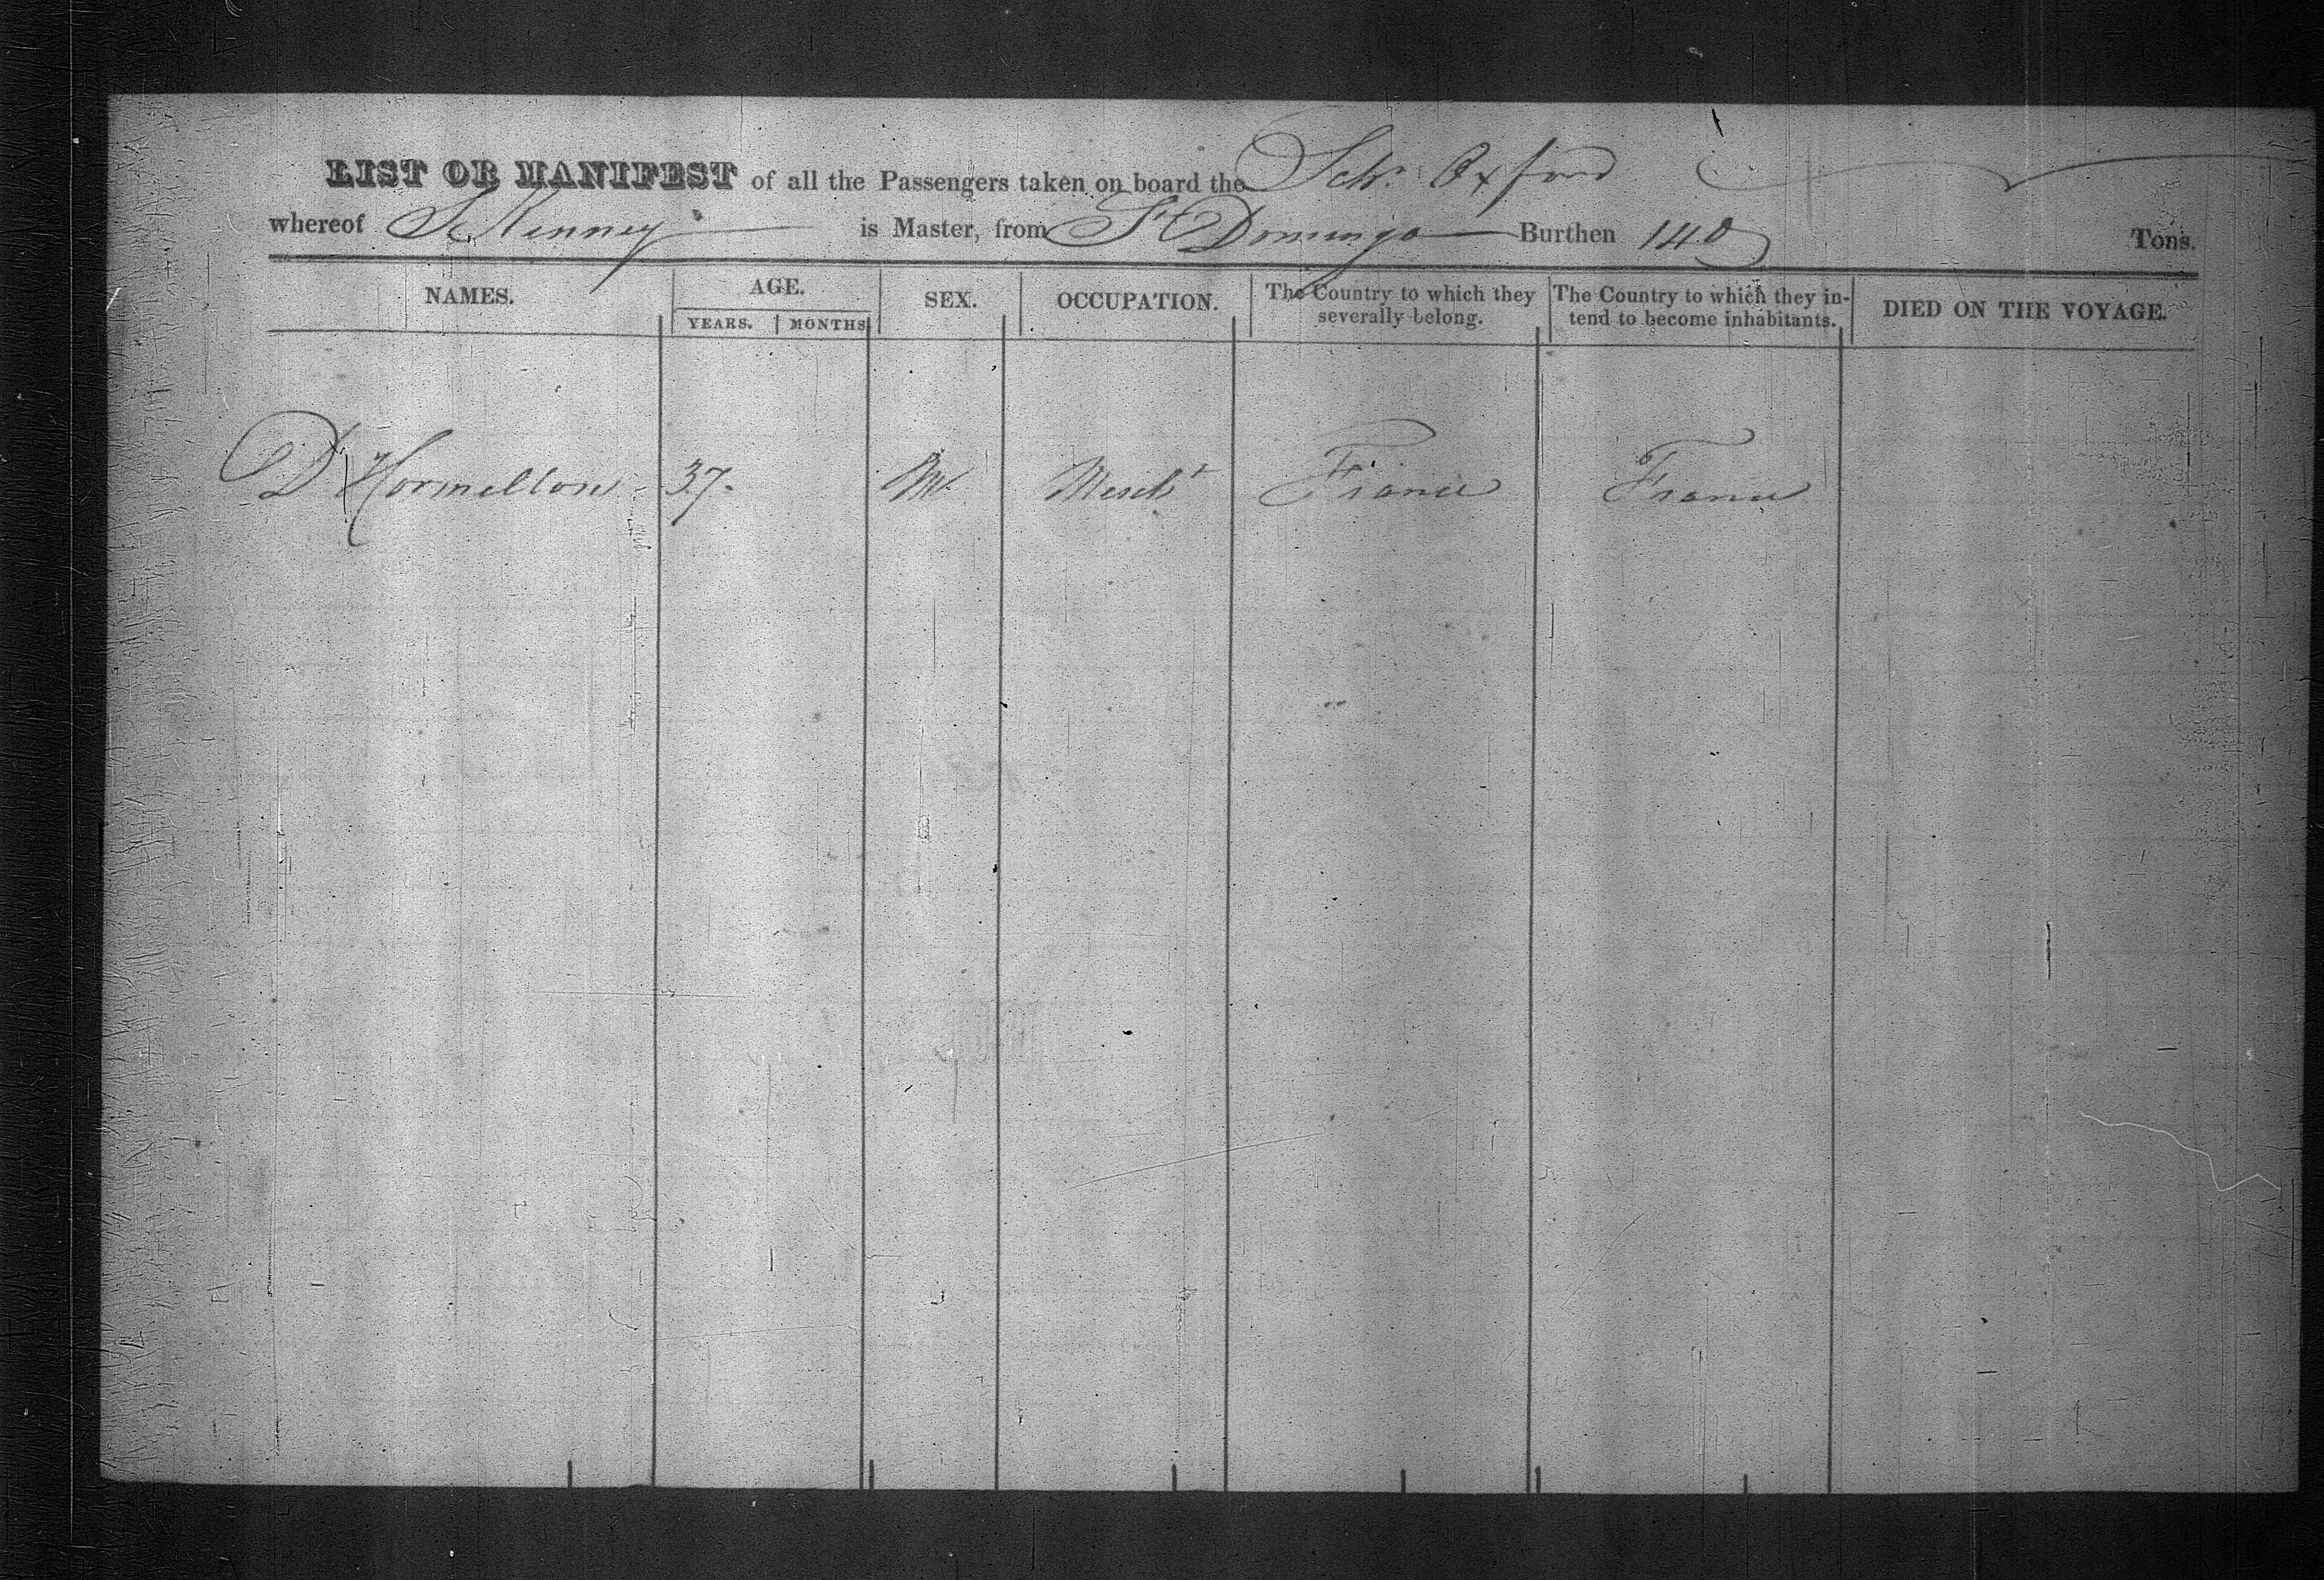 LIST OR MANIFEST of all the Passengers taken on board the Schr. Oxford
whereof S. Kenney is Master, from St Domingo Burthen 140 Tons.
NAMES. AGE. SEX. OCCUPATION. The Country to which they severally belong. The Country to which they in-tend to become inhabitants. DIED ON THE VOYAGE.
YEARS. MONTHS
D'Hormellon 37. M. Mercht France France